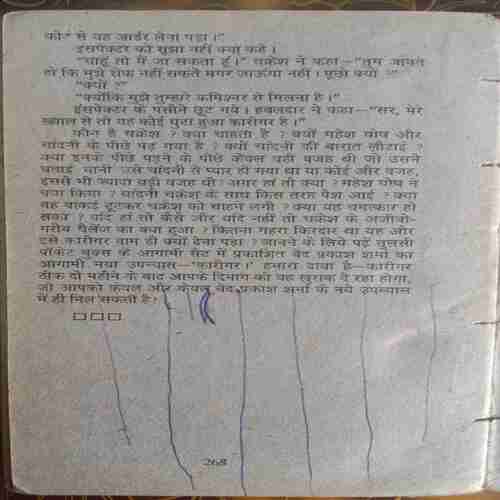 की" से यह आर्डर लेना पड़ा।"
इंसपेक्टर को सूझा नहीं क्या कहे।
"चाहूं तो मैं जा सकता हूं।" चक्रेश ने कहा—"तुम जानते
हो कि मुझे रोक नहीं सकते मगर जाऊंगा नहीं। पूछो क्यों ?"
"क्यों ?"
"क्योंकि मुझे तुम्हारे कमिश्नर से मिलना है।"
इंसपेक्टर के पसीने छूट गये। हवलदार ने कहा—"सर, मेरे
ख्याल से तो यह कोई घुटा हुआ कारीगर है।"
कौन है चक्रेश ? क्या चाहता है ? क्यों महेश घोष और
चांदनी के पीछे पड़ गया है ? क्यों चांदनी की बारात लौटाई ?
क्या इनके पीछे पड़ने के पीछे केवल वही वजह थी जो उसने
बताई यानी उसे चांदनी से प्यार हो गया था या कोई और वजह,
इससे भी ज्यादा बड़ी वजह थी ? अगर हां तो क्या ? महेश घोष ने
क्या किया ? चांदनी चक्रेश के साथ किस तरह पेश आई ? क्या
वह वाकई टूटकर चक्रेश को चाहने लगी ? क्या यह चमत्कार हो
सका ? यदि हां तो कैसे और यदि नहीं तो चक्रेश के अजीबो-
गरीब चैलेंज का क्या हुआ ? कितना गहरा किरदार था यह और
इसे कारीगर नाम ही क्यों देना पड़ा ? जानने के लिये पढ़ें तुलसी
पॉकेट बुक्स के आगामी सैट में प्रकाशित वेद प्रकाश शर्मा का
आगामी नया उपन्यास—'कारीगर'। हमारा दावा है—कारीगर
ठीक दो महीने के बाद आपके दिमाग को वह खुराक दे रहा होगा,
जो आपको केवल और केवल वेद प्रकाश शर्मा के नये उपन्यास
में ही मिल सकती है।
268